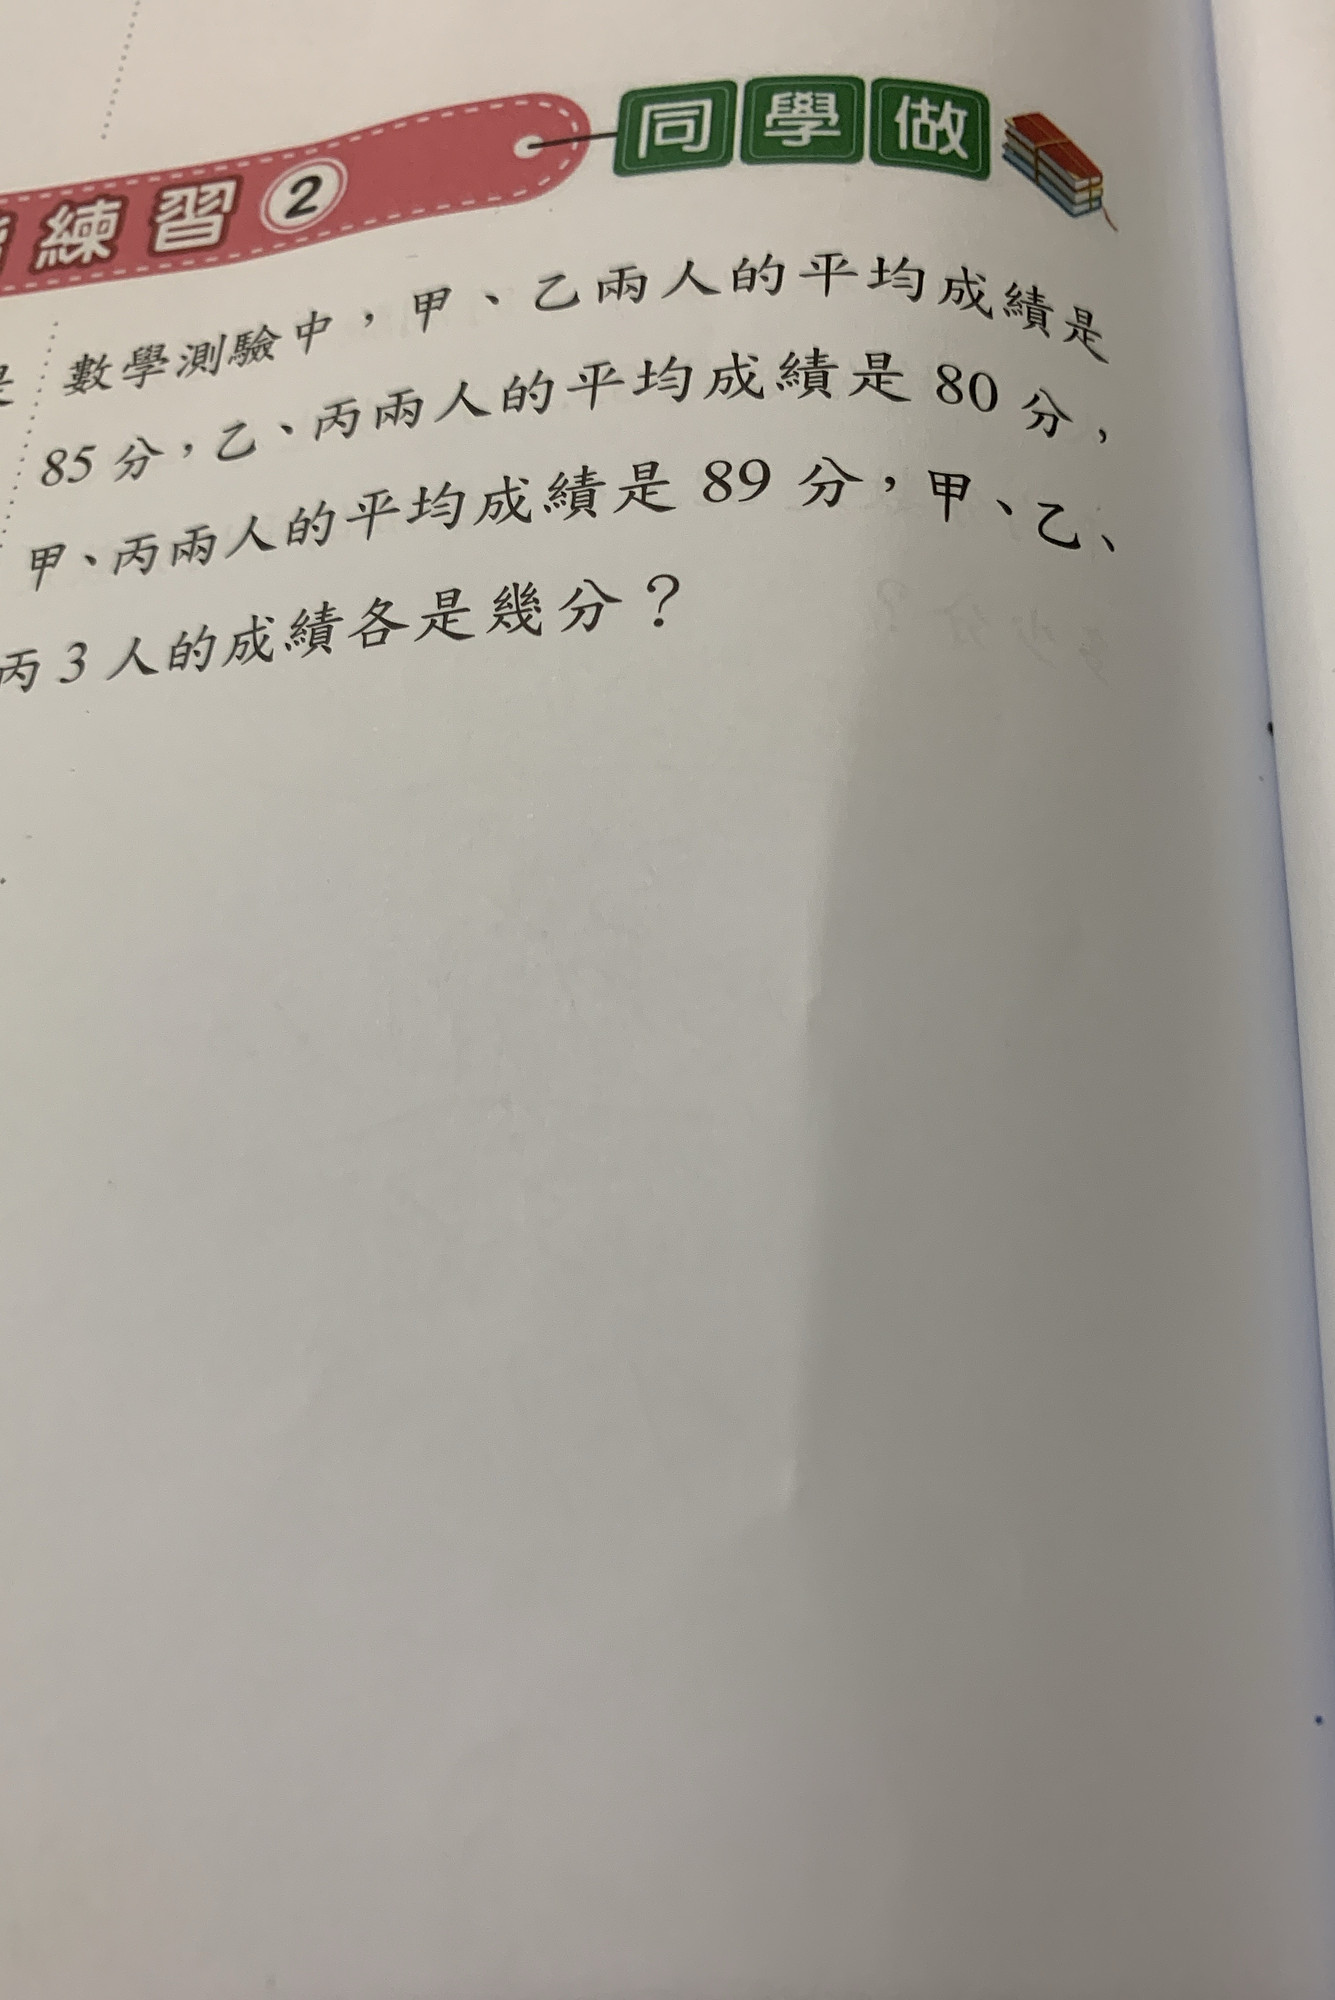 練習2 同學做
數學測驗中，甲、乙兩人的平均成績是
85分，乙、丙兩人的平均成績是 80 分，
甲、丙兩人的平均成績是 89 分，甲、乙、
丙 3 人的成績各是幾分？